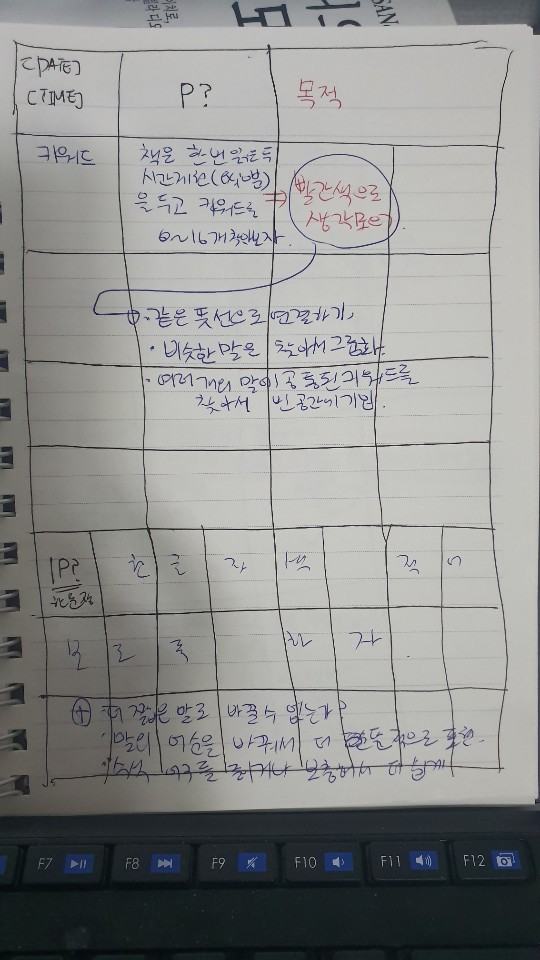 [DATE]
[TIME]
P?
목적
키워드
책을 한번 읽은 후
시간제한
을 두고 키워드를
찾아보자.
빨간색으로
생각모으기
· 같은 뜻 선으로 연결하기,
· 비슷한 말은 찾아서 그룹화.
· 여러 개의 말이 공통된 키워드를
찾아서 빈공간에 기입.
1P?
한 글 자 씩 적
보 도 록 하 자 .
⊕ 더 짧은 말로 바꿀 수 있는가?
· 말의 어순을 바꿔서 더 표현.
어구를 보충해서 더 쉽게
F7
F8
F9
F10
F11
F12